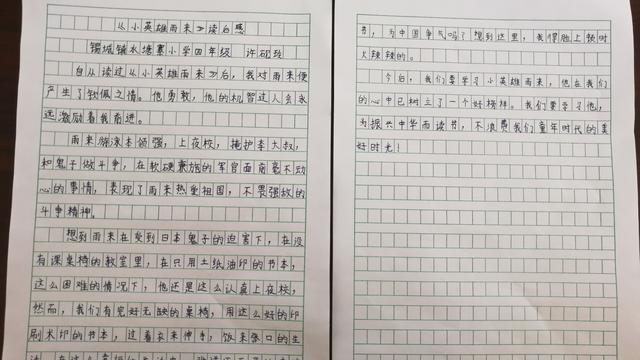 《小英雄雨来》读后感
锡城镇水塘寨小学四年级 许砚玲
自从读过《小英雄雨来》后，我对雨来便
产生了钦佩之情。他勇敢，他的机智过人会永
远激励着我前进。
雨来游泳本领强，上夜校，掩护李大叔，
和鬼子做斗争，在软硬兼施的军官面前毫不动
心的事情，表现了雨来热爱祖国，不畏强敌的
斗争精神。
想到雨来在受到日本鬼子的迫害下，在没
有课桌椅的教室里，在只用土纸油印的书本，
这么困难的情况下，他还是这么认真上夜校，
然而，我们有完好无缺的桌椅，用这么好的印
刷术印的书本，过着衣来伸手，饭来张口的生
节，为中国争气吗？想到这里，我得脸上顿时
火辣辣的。
今后，我们要学习小英雄雨来，他在我们
的心中已树立了一个好榜样。我们要学习他，
为振兴中华而读书，不浪费我们童年时代的美
好时光！